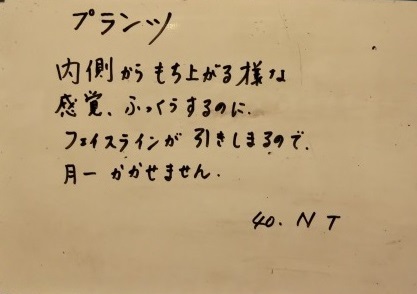 プランツ
内側からもち上がる様な
感覚、ふっくらするのに.
フェイスラインが引きしまるので.
月一かかせません.
40. N T